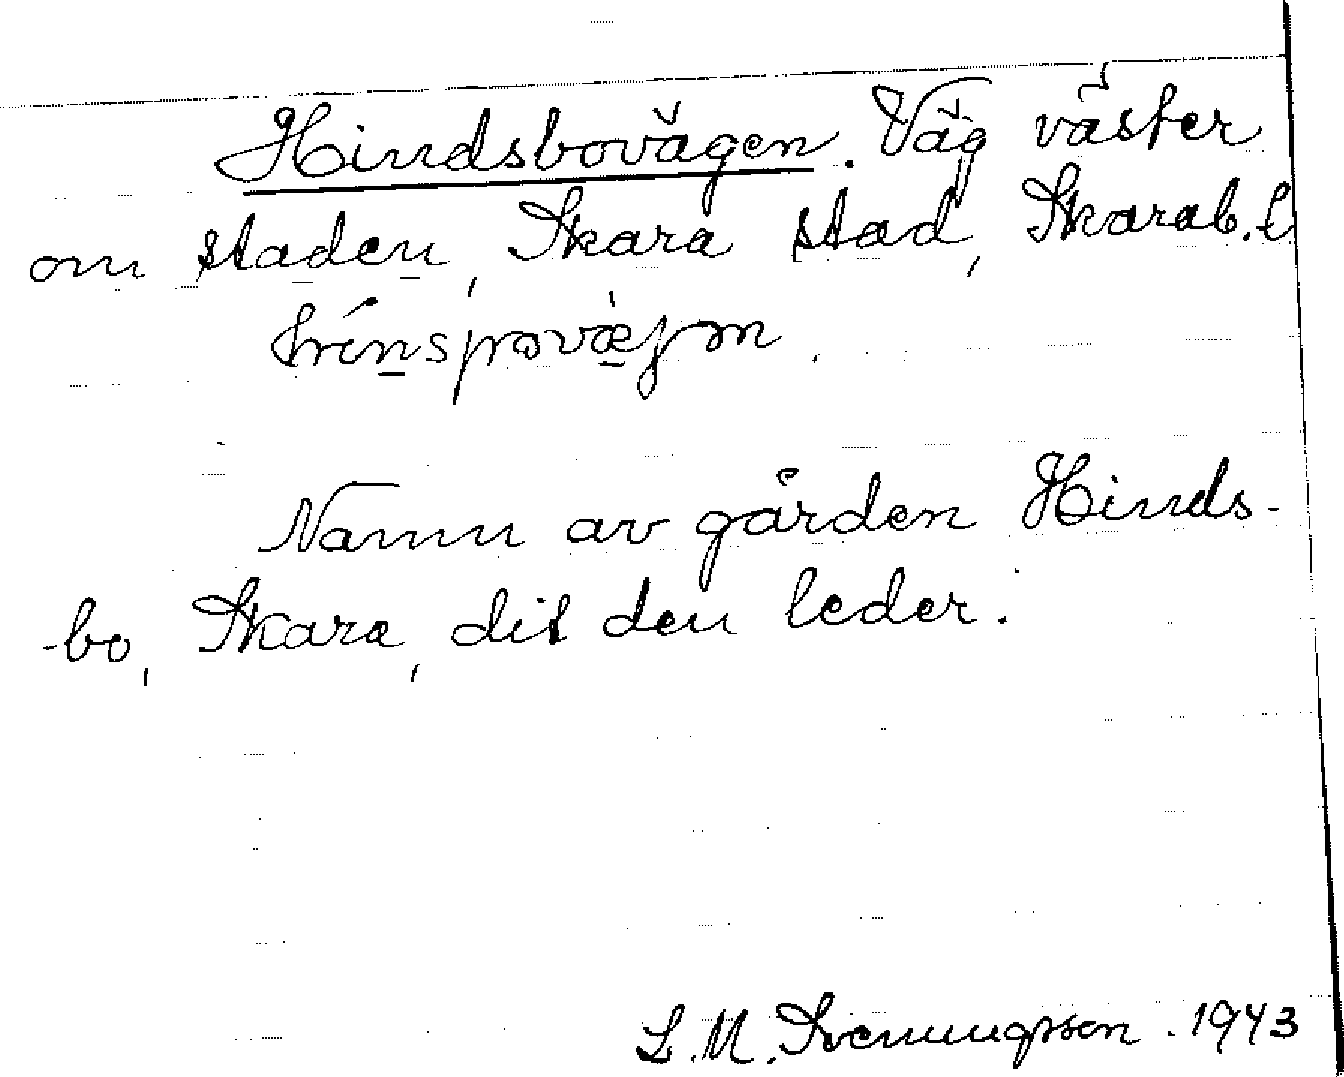 Hindsbovägen. Väg väster
om staden, Skara stad, Skarab. l
Namn av gården Hinds-
-bo, Skara, dit den leder.
L. M. Svenungsson. 1943